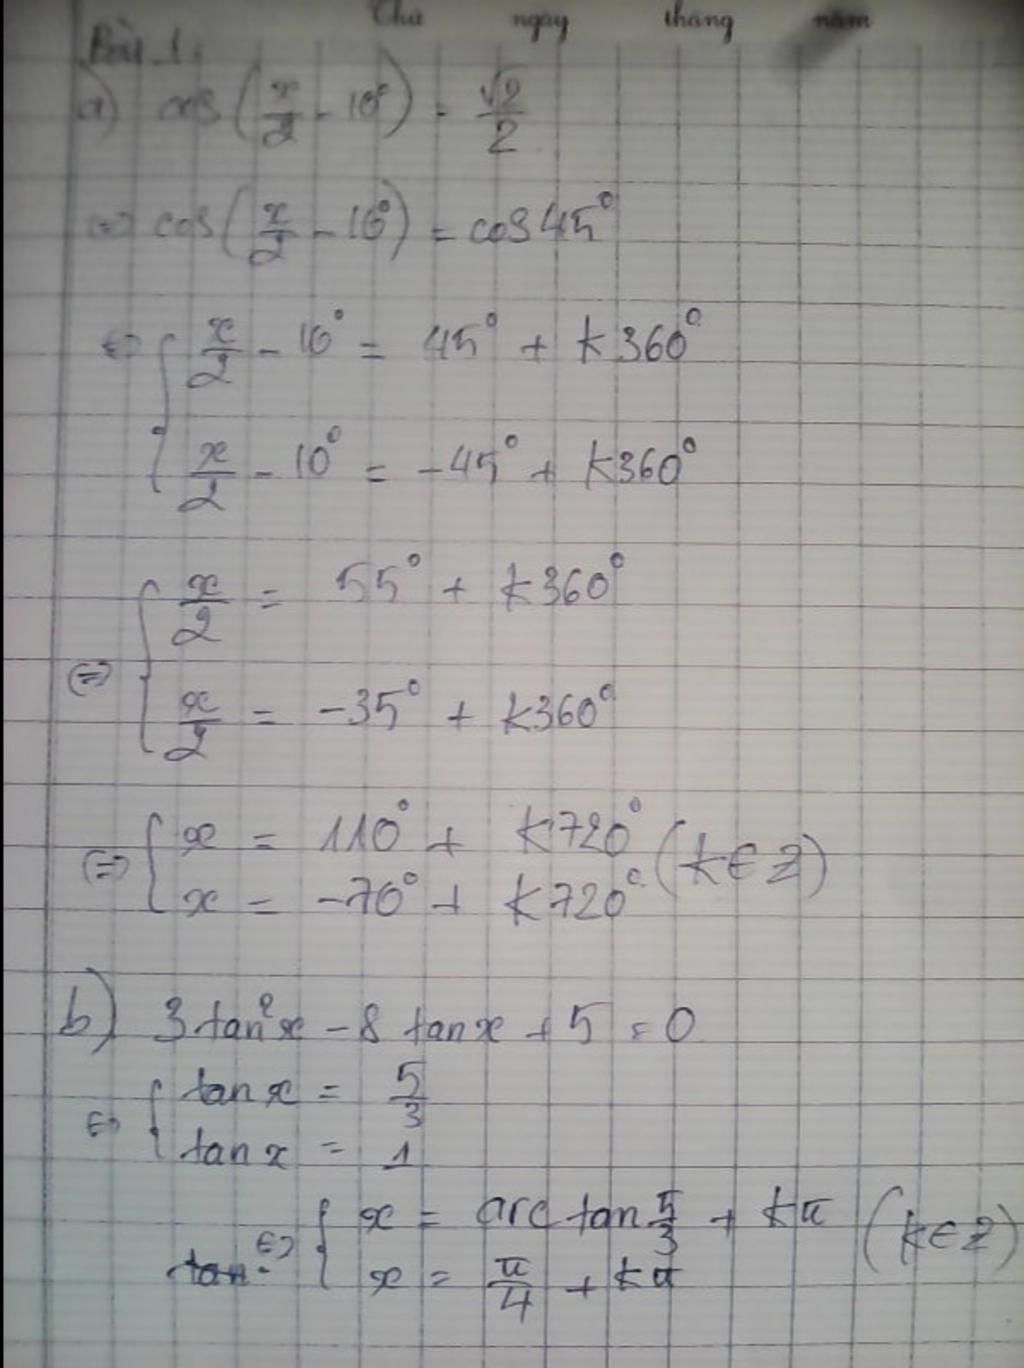 Thứ ngày tháng năm
Bài 1.
a) cos(x/2 - 10°) = √2/2
(=) cos(x/2 - 10°) = cos 45°
(=) { x/2 - 10° = 45° + k360°
x/2 - 10° = -45° + k360°
(=) { x/2 = 55° + k360°
x/2 = -35° + k360°
(=) { x = 110° + k720° (k∈Z)
x = -70° + k720°
b) 3tan²x - 8 tanx + 5 = 0
(=) { tan x = 5/3
tan x = 1
(=) { x = arc tan 5/3 + kπ (k∈Z)
tan. x = π/4 + kπ